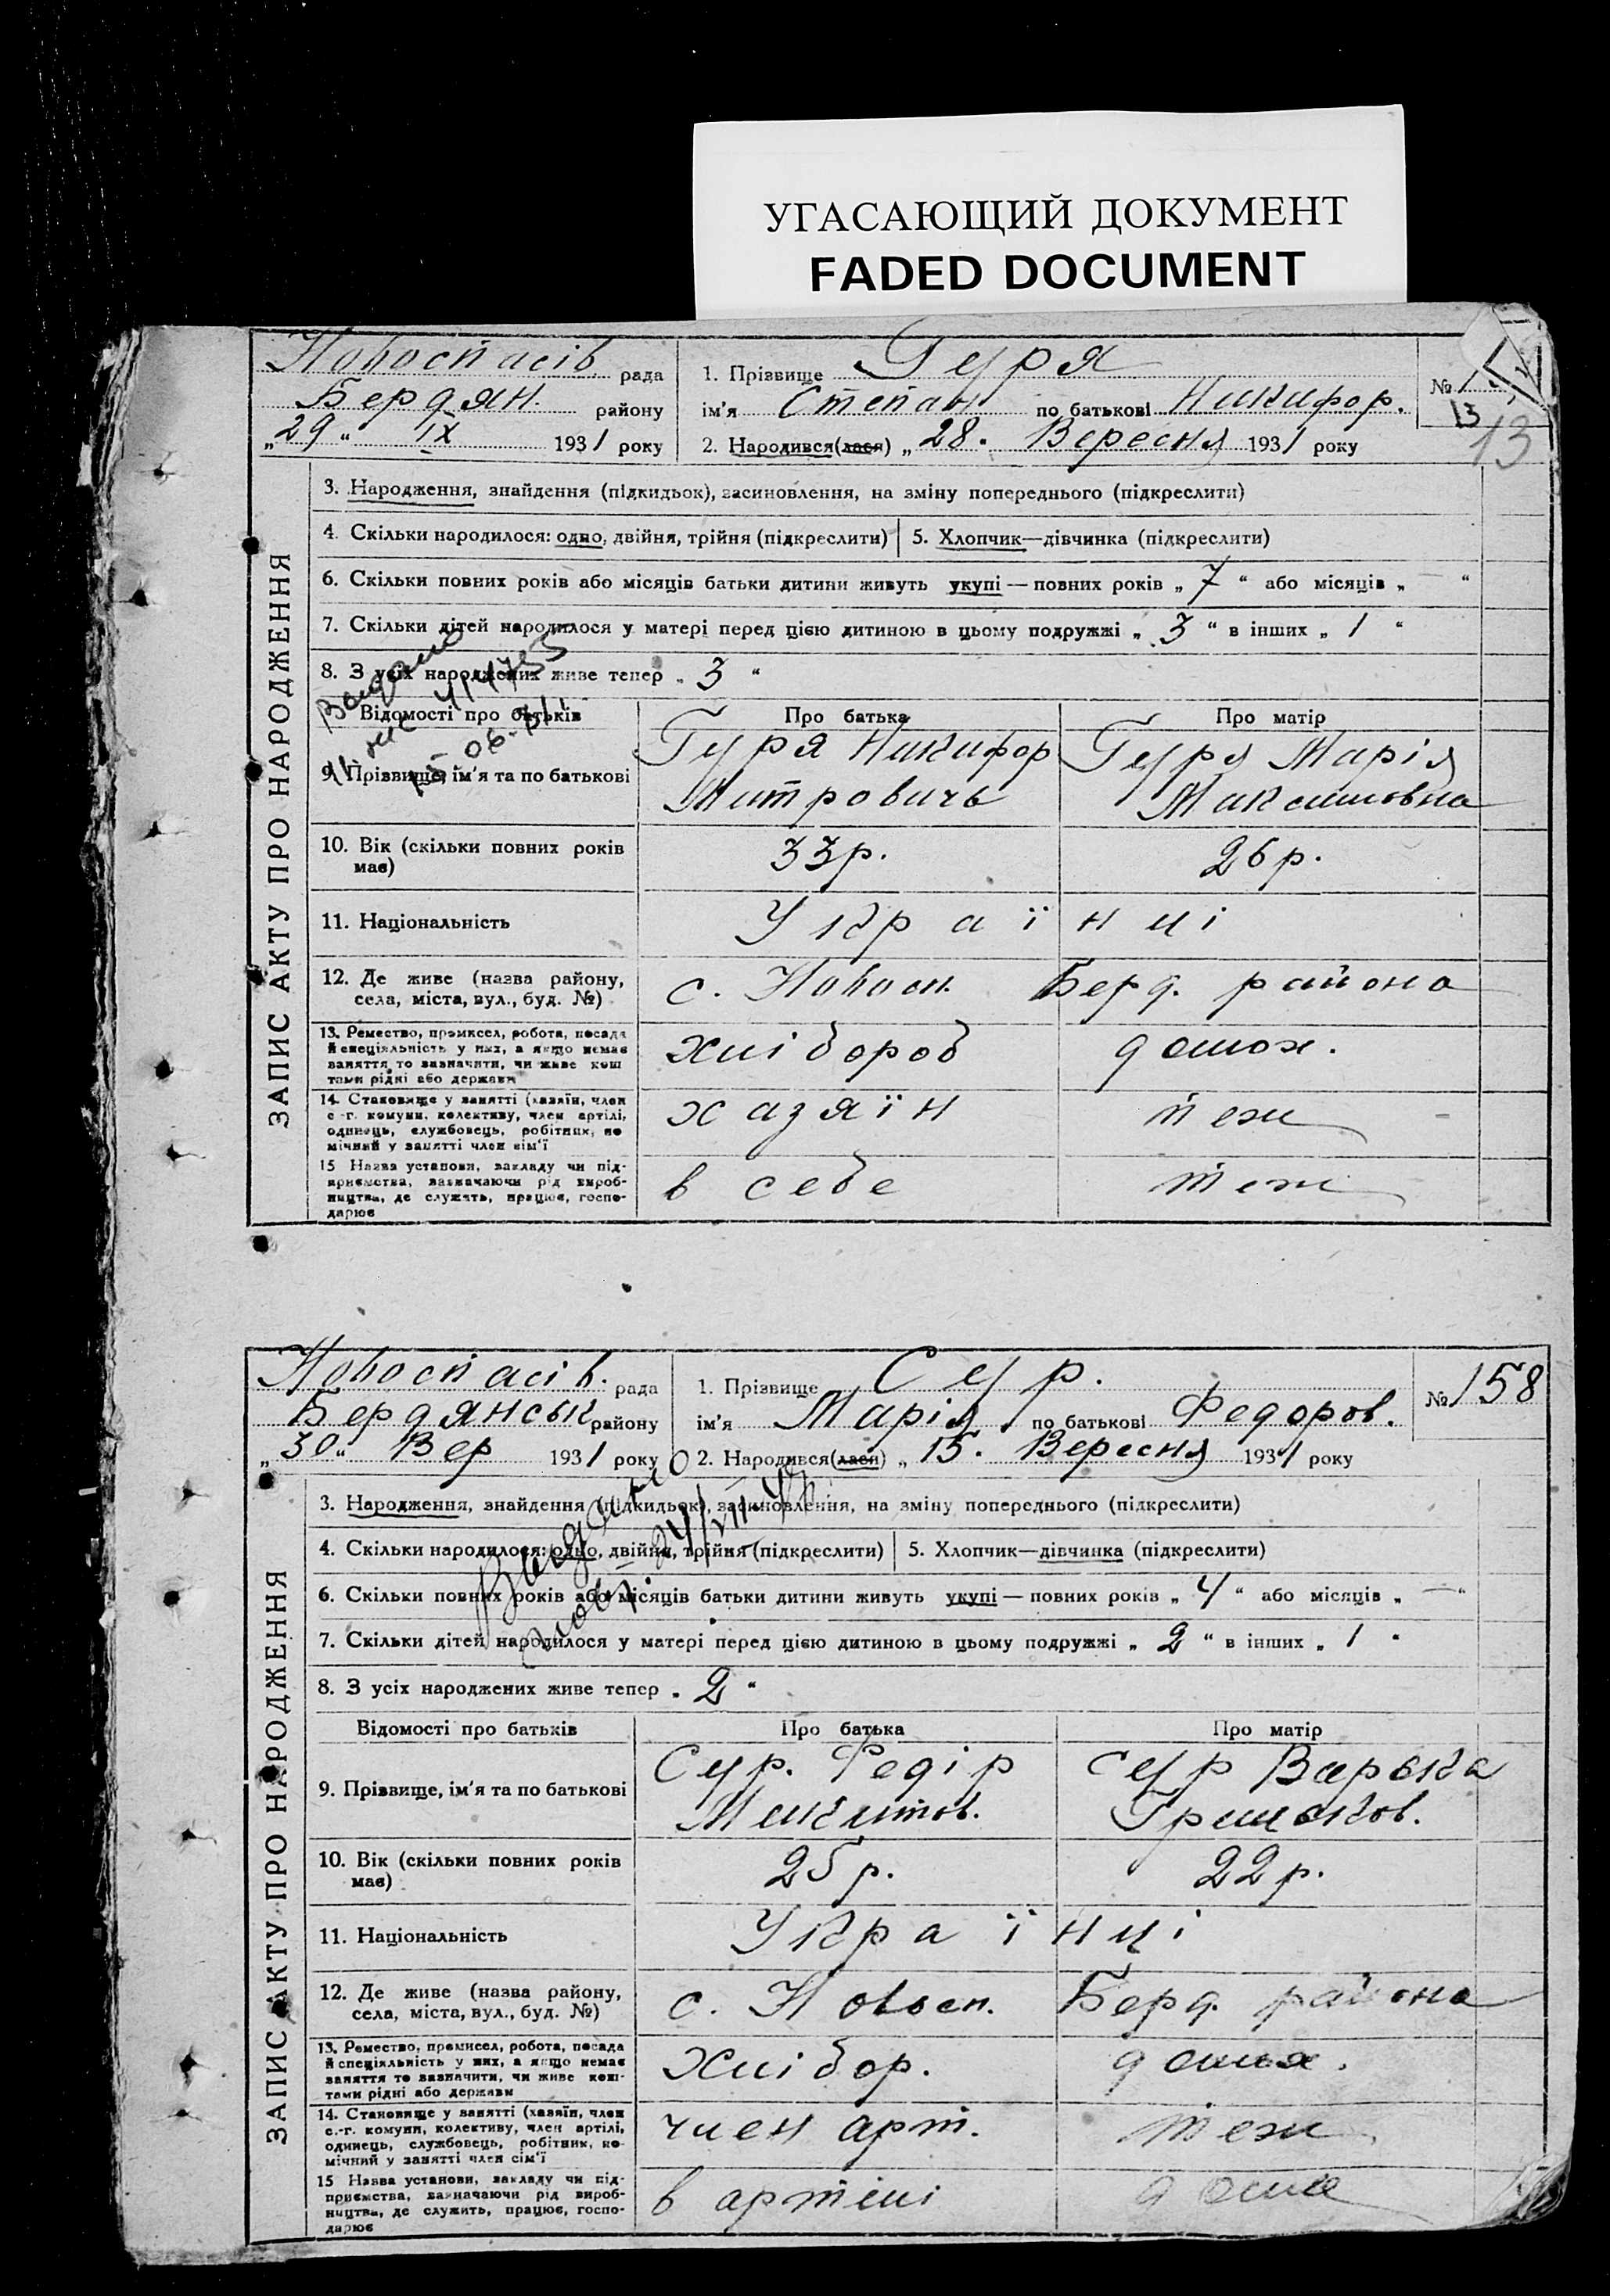 УГАСАЮЩИЙ ДОКУМЕНТ
FADED DOCUMENT
Новоспасів. рада
Бердян. району
„29“ IX 1931 року
1. Прізвище Гуря
ім'я Степан по батькові Никифор.
2. Народився(лася) „28. Вересня 1931 року
№
13
13
ЗАПИС АКТУ ПРО НАРОДЖЕННЯ
3. Народження, знайдення (підкидьок), засиновлення, на зміну попереднього (підкреслити)
4. Скільки народилося: одно, двійня, трійня (підкреслити) 5. Хлопчик—дівчинка (підкреслити)
6. Скільки повних років або місяців батьки дитини живуть укупі — повних років „ 7 “ або місяців „ — “
7. Скільки дітей народилося у матері перед цією дитиною в цьому подружжі „ 3 “ в інших „ 1 “
8. З усіх народжених живе тепер „ 3 “
Відомості про батьків Про батька Про матір
9. Прізвище, ім'я та по батькові
Гуря Никифор
Митровичь
Гуря Марія
Максимовна
10. Вік (скільки повних років має) 33 р. 26 р.
11. Національність Українці
12. Де живе (назва району,
села, міста, вул., буд. №) с. Новосп. Берд. района
13. Ремество, промисел, робота, посада
й спеціяльність у них, а якщо немає
заняття то зазначити, чи живе кош
тами рідні або держави
хлібороб домох.
14. Становище у занятті (хазяїн, член
с.-г. комуни, колективу, член артілі,
одинець, службовець, робітник, по
мічний у занятті член сім'ї
хазяїн теж
15 Назва установи, закладу чи під-
приємства, зазначаючи рід вироб-
ництва, де служить, працює, госпо-
дарює
в себе теж
Новоспасів. рада
Бердянськ району
„30“ Вер 1931 року
1. Прізвище Сур.
ім'я Марія по батькові Федоров.
2. Народився(лася) „15. Вересня 1931 року
№ 158
ЗАПИС АКТУ ПРО НАРОДЖЕННЯ
3. Народження, знайдення (підкидьок), засиновлення, на зміну попереднього (підкреслити)
4. Скільки народилося: одно, двійня, трійня (підкреслити) 5. Хлопчик—дівчинка (підкреслити)
6. Скільки повних років або місяців батьки дитини живуть укупі — повних років „ 4 “ або місяців „ — “
7. Скільки дітей народилося у матері перед цією дитиною в цьому подружжі „ 2 “ в інших „ 1 “
8. З усіх народжених живе тепер „ 2 “
Відомості про батьків Про батька Про матір
9. Прізвище, ім'я та по батькові
Сур. Федір
Микитов.
Сур Варька
Гришков.
10. Вік (скільки повних років має) 25 р. 22 р.
11. Національність Українці
12. Де живе (назва району,
села, міста, вул., буд. №) с. Новосп. Берд. района
13. Ремество, промисел, робота, посада
й спеціяльність у них, а якщо немає
заняття то зазначити, чи живе кош-
тами рідні або держави
хлібор. домох.
14. Становище у занятті (хазяїн, член
с.-г. комуни, колективу, член артілі,
одинець, службовець, робітник, по-
мічний у занятті член сім'ї
член арт. теж
15 Назва установи, закладу чи під-
приємства, зазначаючи рід вироб-
ництва, де служить, працює, госпо-
дарює
в артілі дома